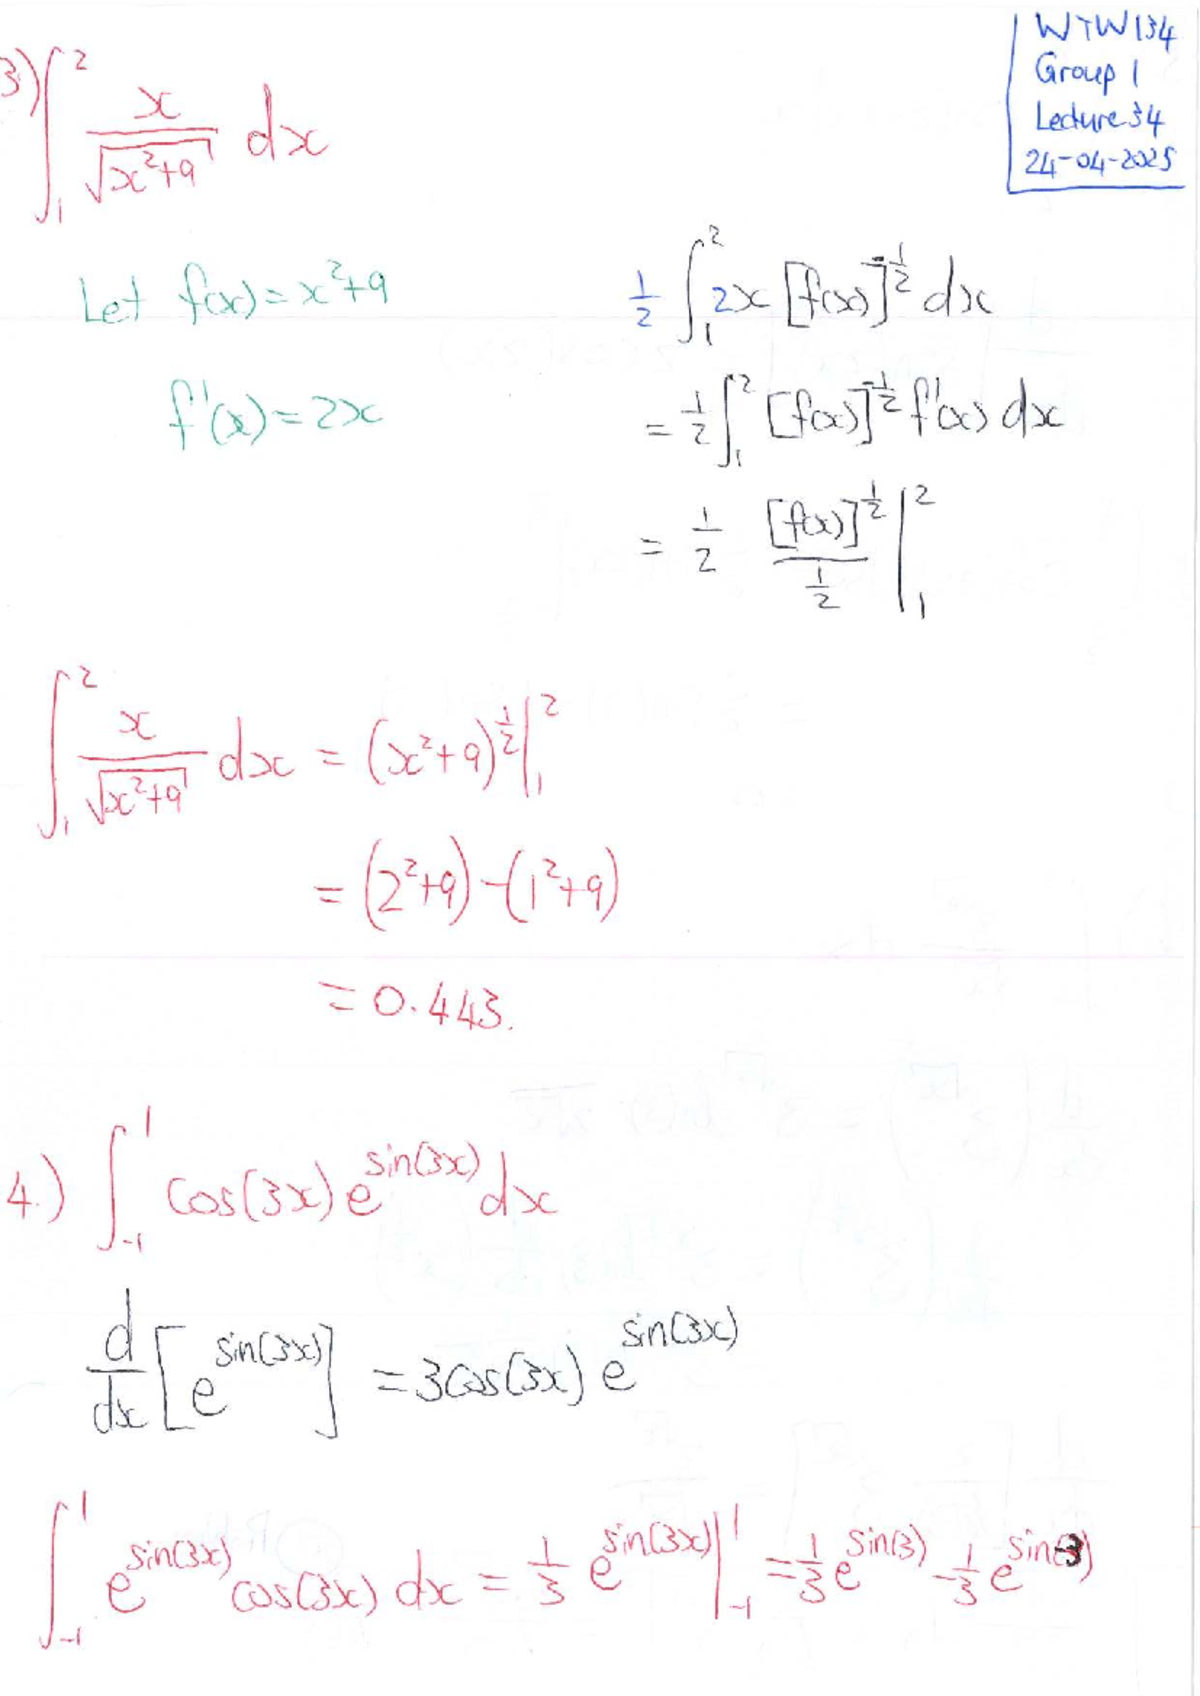 WTW134
Group 1
Lecture 34
24-04-2025
3) ∫₁² x/√(x²+9) dx
Let f(x) = x²+9
f'(x) = 2x
1/2 ∫₁² 2x [f(x)]^(-1/2) dx
= 1/2 ∫₁² [f(x)]^(-1/2) f'(x) dx
= 1/2 [f(x)]^(1/2) / (1/2) |₁²
∫₁² x/√(x²+9) dx = (x²+9)^(1/2) |₁²
= (2²+9) - (1²+9)
= 0.443.
4.) ∫₋₁¹ cos(3x) e^(sin(3x)) dx
d/dx [e^(sin(3x))] = 3cos(3x) e^(sin(3x))
∫₋₁¹ e^(sin(3x)) cos(3x) dx = 1/3 e^(sin(3x)) |₋₁¹ = 1/3 e^(sin(3)) - 1/3 e^(sin(-3))